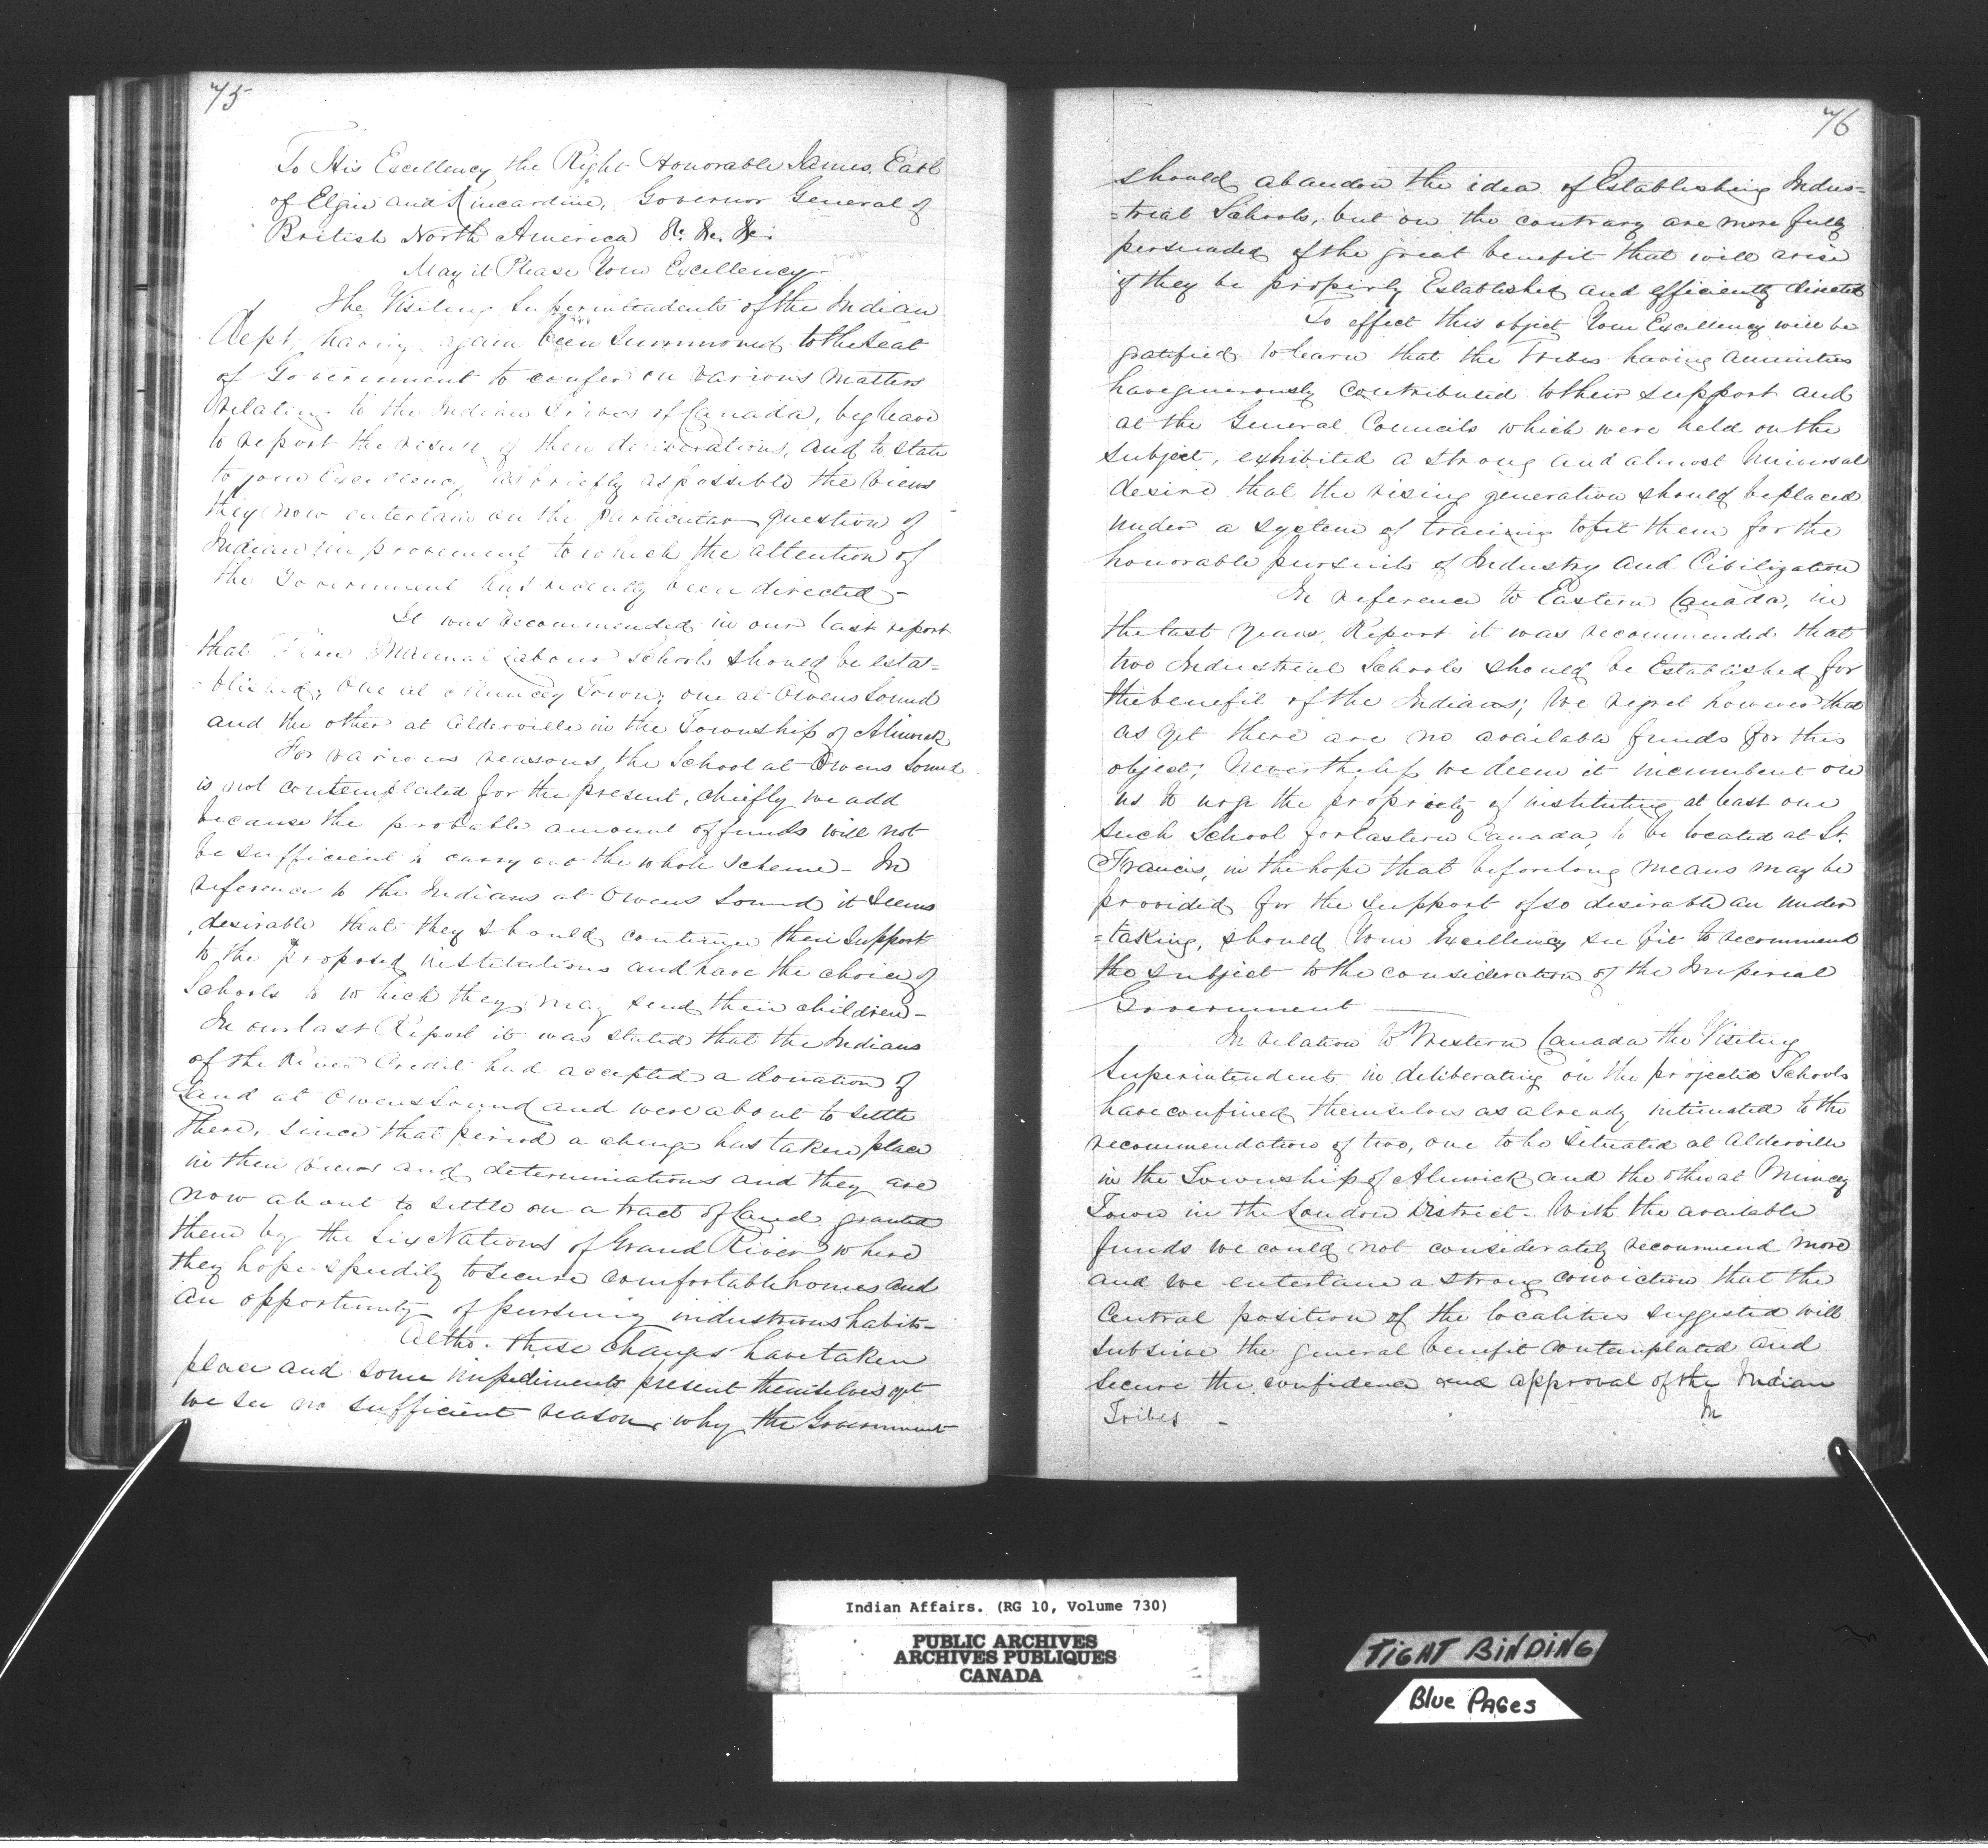 75
To His Excellency the Right Honorable James, Earl
of Elgin and Kincardine, Governor General of
British North America &c. &c. &c.
May it Please Your Excellency
The Visiting Superintendents of the Indian
Dept. having again been summoned to the Seat
of Government to confer on various matters
relating to the Indian Tribes of Canada, beg leave
to report the result of their deliberations, and to state
to your Excellency as briefly as possible the views
they now entertain on the particular question of
Indian improvement to which the attention of
the Government has recently been directed -
It was recommended in our last report
that Manual Labour Schools should be estab=
=blished; One at Muncey Town; one at Owens Sound
and the other at Alderville in the Township of Alnwick
For various reasons, the School at Owens Sound
is not contemplated for the present, chiefly we add
because the probable amount of funds will not
be sufficient to carry out the whole scheme - In
reference to the Indians at Owens Sound it seems
desirable that they should continue their support
to the proposed institutions and have the choice of
Schools to which they may send their children -
In our last Report it was stated that the Indians
of the River Credit had accepted a donation of
Land at Owens Sound and were about to settle
there, since that period a change has taken place
in their views and determinations and they are
now about to settle on a tract of land granted
them by the Six Nations of Grand River where
they hope speedily to secure comfortable homes and
an opportunity of pursuing industrious habits -
Altho. these changes have taken
place and some impediments present themselves yet
we see no sufficient reason, why the Government
76
should abandon the idea of Establishing Indus=
=trial Schools, but on the contrary are more fully
persuaded of the great benefit that will arise
if they be properly Established and efficiently directed
To effect this object Your Excellency will be
gratified to learn that the Tribes having annuities
have generously contributed to their support and
at the General Councils which were held on the
subject, exhibited a strong and almost Universal
desire that the rising generation should be placed
under a system of training to fit them for the
honorable pursuits of Industry and Civilization
In reference to Eastern Canada, in
the last years Report it was recommended that
two Industrial Schools should be Established for
the benefit of the Indians; We regret however that
as yet there are no available funds for this
object; Nevertheless we deem it incumbent on
us to urge the propriety of instituting at least one
such School for Eastern Canada, to be located at St.
Francis, in the hope that before long means may be
provided for the support of so desirable an under
=taking, should Your Excellency see fit to recommend
the subject to the consideration of the Imperial
Government
In relation to Western Canada the Visiting
Superintendents in deliberating on the projected Schools
have confined themselves as already intimated to the
recommendation of two, one to be situated at Alderville
in the Township of Alnwick and the other at Muncey
Town in the London District. With the available
funds we could not considerately recommend more
and we entertain a strong conviction that the
Central position of the localities suggested will
subserve the general benefit contemplated and
secure the confidence and approval of the Indian
Tribes -
In
Indian Affairs. (RG 10, Volume 730)
PUBLIC ARCHIVES
ARCHIVES PUBLIQUES
CANADA
TIGHT BINDING
Blue PAGes